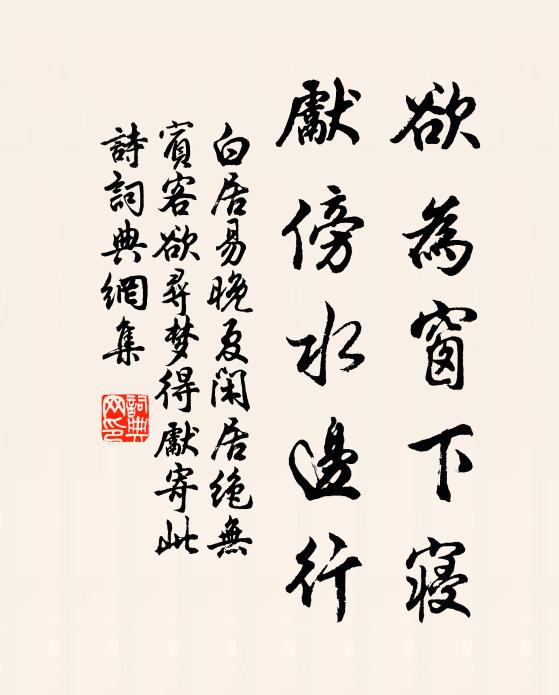 欲為窗下寢
獻傍水邊行
白居易晚夏閑居絶無
賓客欲尋梦得獻寄此
詩詞典網集
詞典网印